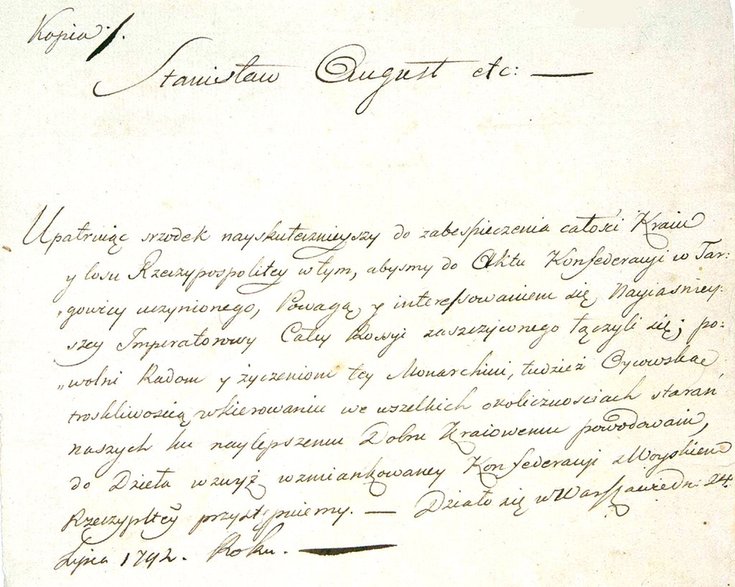 Kopia /.
Stanisław August etc: —
Upatruiąc srzodek nayskutecznieyszy do zabespieczenia całości Kraiu
y losu Rzeczypospolitey w tym, abysmy do Aktu Konfederacyi w Tar-
„gowicy uczynionego, Powagą y interessowaniem się Nayiasniey-
szey Imperatorowy Całey Rossyi zaszczyconego łączyli się; po-
„wolni Radom y życzeniom tey Monarchini, tudzież Oycowską
troskliwością w kierowaniu we wszelkich okolicznosciach starań
naszych ku naylepszemu Dobru Kraiowemu powodowani,
do Dzieła wzwyż wzmiankowaney Konfederacyi z Woyskiem
Rzeczypltey przystępuiemy. — Działo się w Warszawie dn: 24.
Lipca 1792. Roku. —